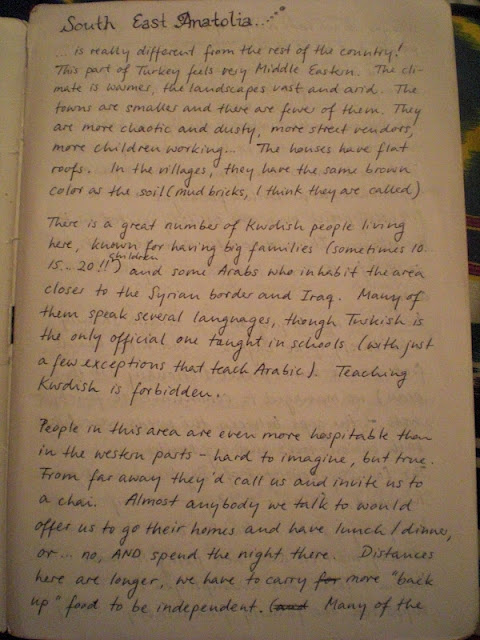 South East Anatolia...
... is really different from the rest of the country!
This part of Turkey feels very Middle Eastern. The cli-
mate is warmer, the landscapes vast and arid. The
towns are smaller and there are fewer of them. They
are more chaotic and dusty, more street vendors,
more children working... The houses have flat
roofs. In the villages, they have the same brown
color as the soil (mud bricks, I think they are called)
There is a great number of Kurdish people living
here, known for having big families (sometimes 10
15...20!! children) and some Arabs who inhabit the area
closer to the Syrian border and Iraq. Many of
them speak several languages, though Turkish is
the only official one taught in schools (with just
a few exceptions that teach Arabic). Teaching
Kurdish is forbidden.
People in this area are even more hospitable than
in the western parts - hard to imagine, but true.
From far away they'd call us and invite us to
a chai. Almost anybody we talk to would
offer us to go their homes and have lunch/dinner,
or... no, AND spend the night there. Distances
here are longer, we have to carry for more "back
up" food to be independent. (and Many of the